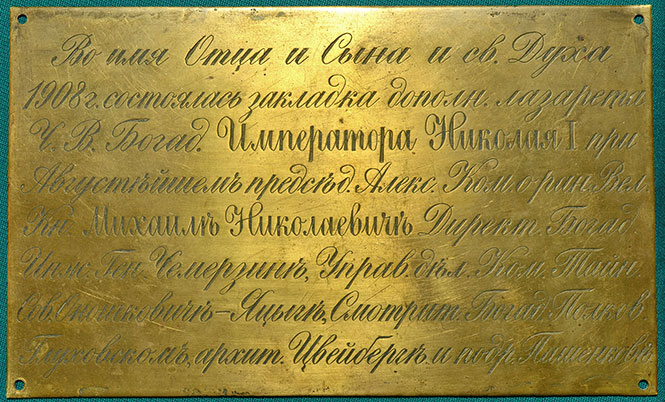 Во имя Отца и Сына и св. Духа
1908 г. состоялась закладка дополн. лазарета
Ч. В. Богад. Императора Николая I при
Августѣйшемъ предсѣд. Алекс. Ком. о ран. Вел.
Кн. Михаилѣ Николаевичѣ Директ. Богад.
Инж. Ген. Чемерзинѣ, Управ. дѣл. Ком. Тайн.
Сов. Яцыгѣ, Смотрит. Богад. Полков.
Глуховскомъ, архит. Цвейбергѣ и подр.